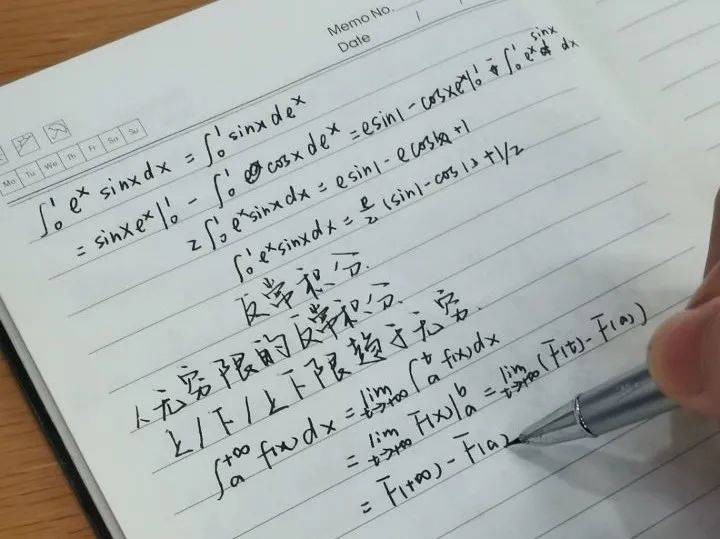 Memo No.
Date / /
Mo Tu We Th Fr Sa Su
∫₀¹ eˣ sinx dx = ∫₀¹ sinx deˣ
= sinx eˣ|₀¹ - ∫₀¹ cosx deˣ = esin1 - cosx eˣ|₀¹ - ∫₀¹ eˣ sinx dx
2∫₀¹ eˣ sinx dx = esin1 - ecos1 + 1
∫₀¹ eˣ sinx dx = e/2 (sin1 - cos1) + 1/2
反常积分
1、无穷限的反常积分
上/下/上下限趋于无穷.
∫ₐ⁺∞ f(x) dx = lim t→+∞ ∫ₐᵗ f(x) dx
= lim t→+∞ F(x)|ₐᵇ = lim t→+∞ (F(t) - F(a))
= F(+∞) - F(a)